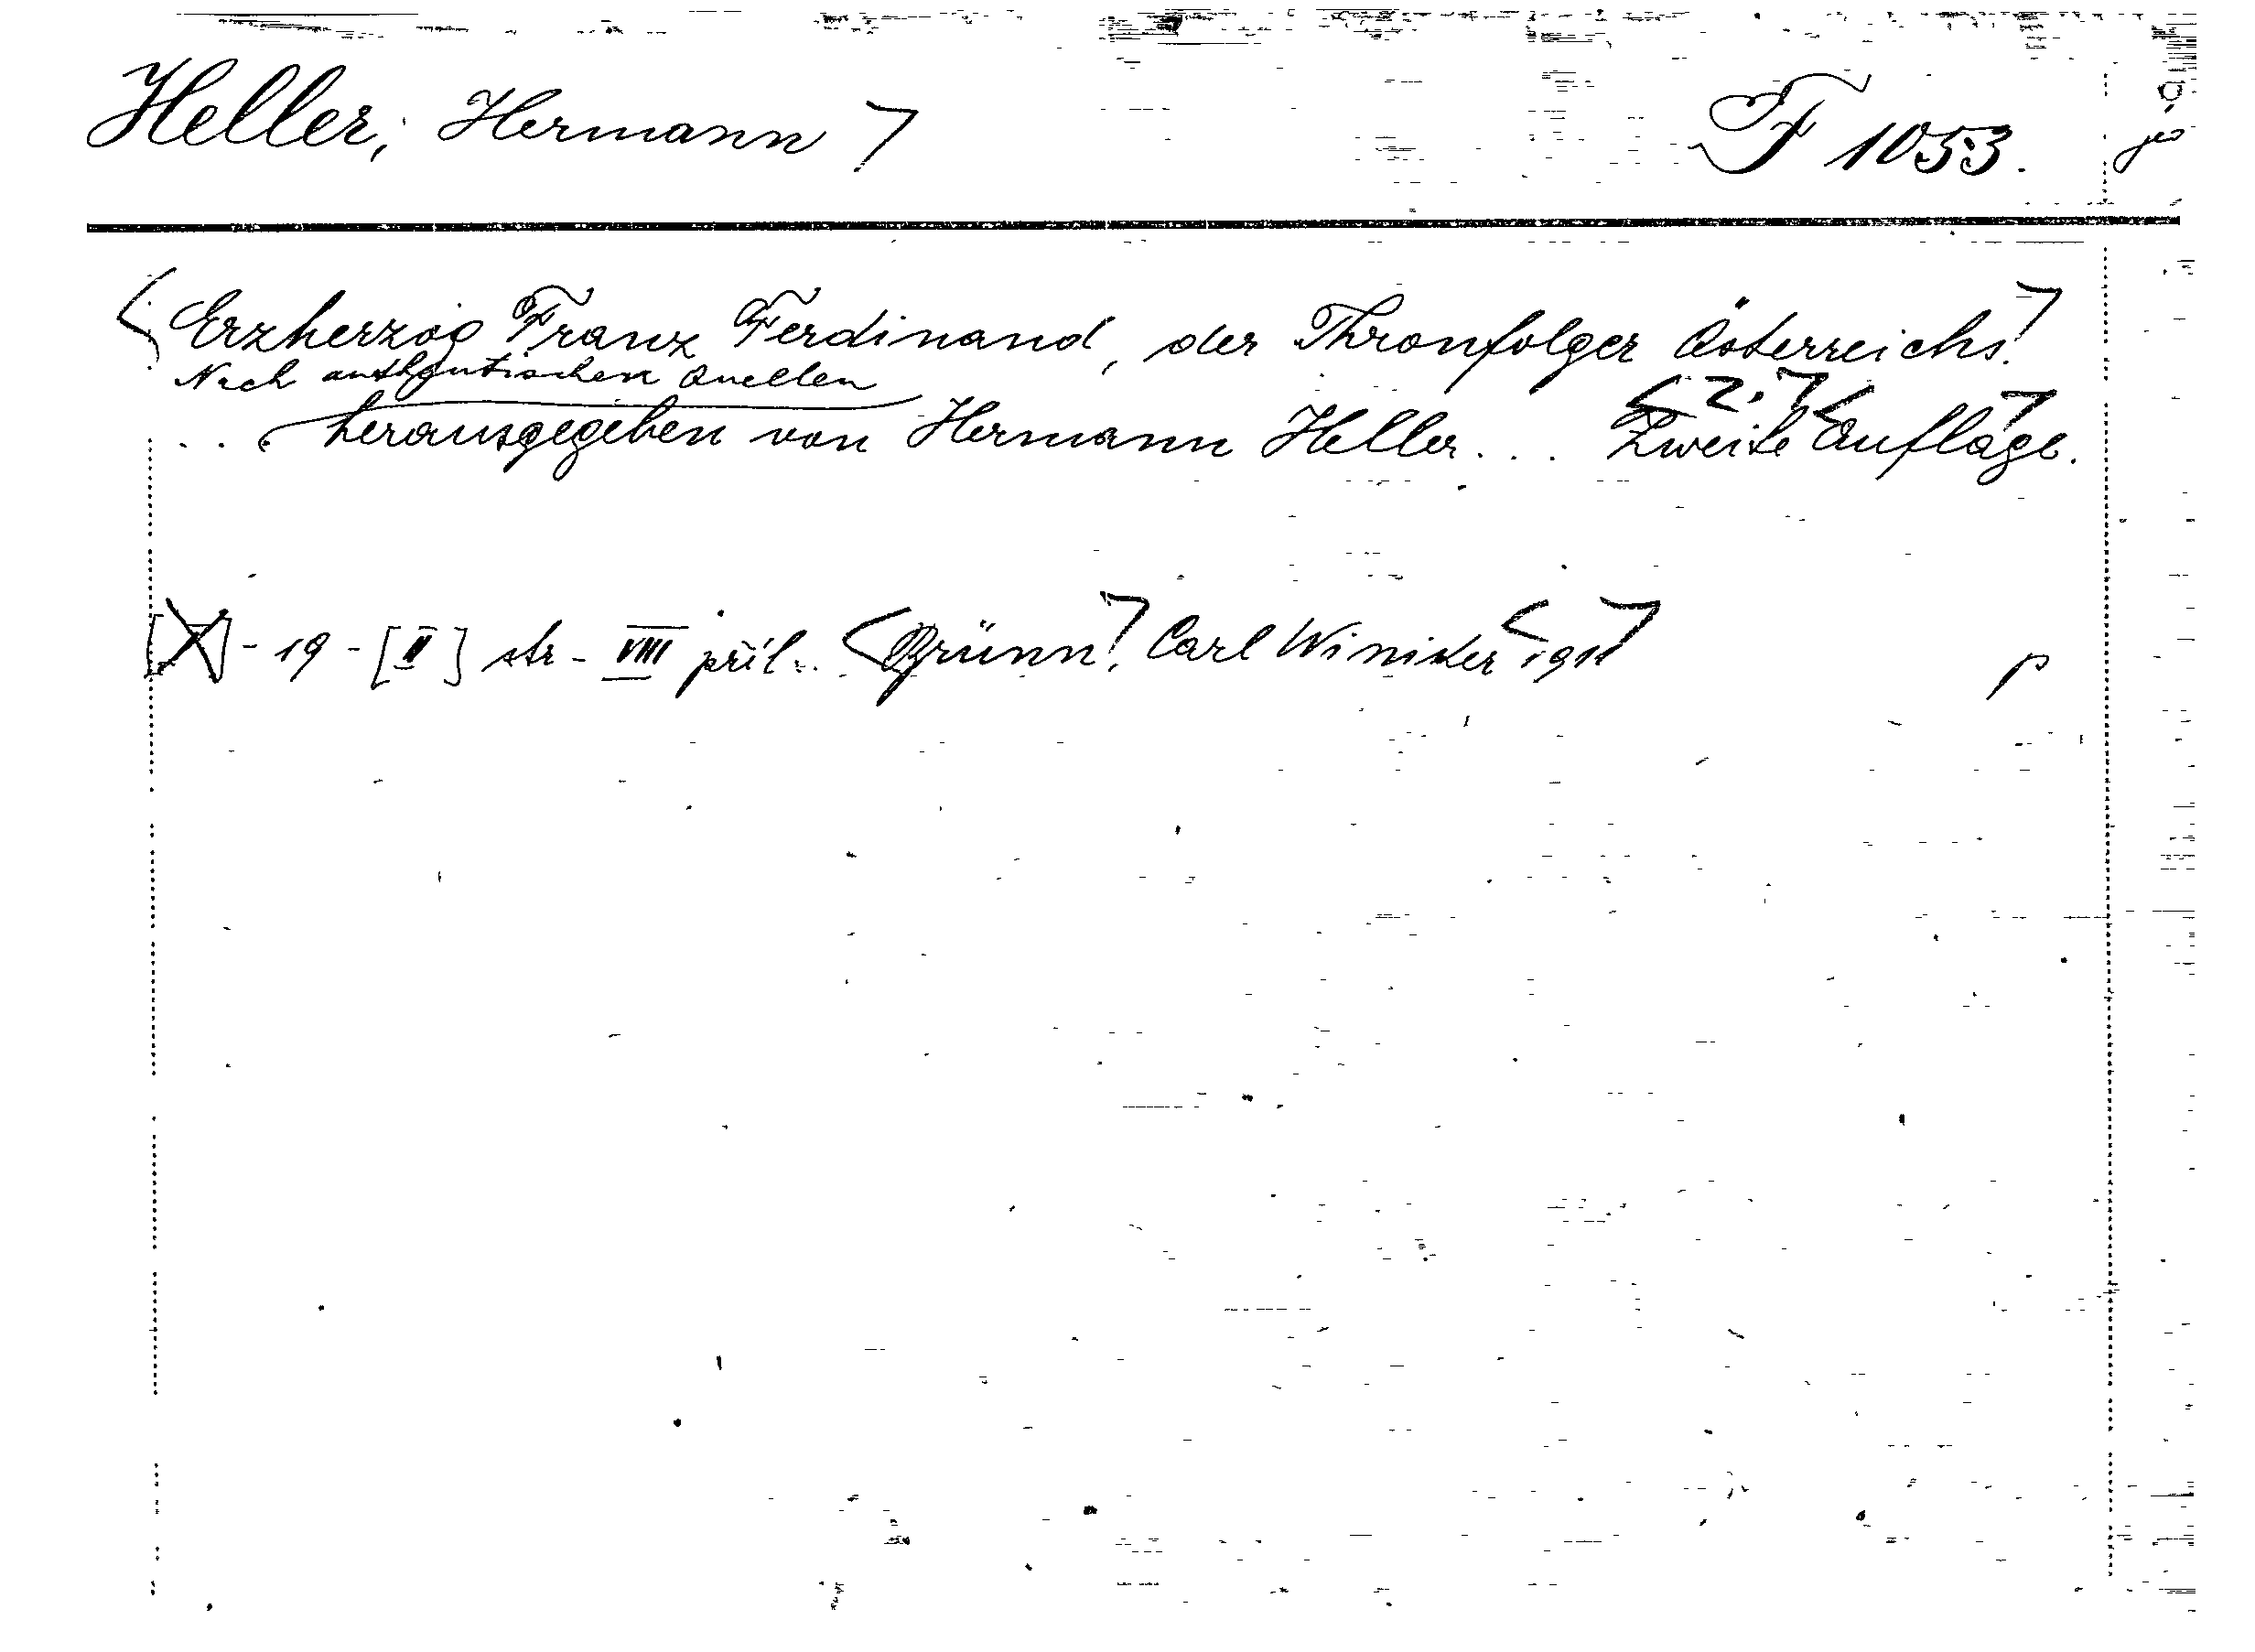 Heller, Hermann F 1053.
Erzherzog Franz Ferdinand, der Thronfolger Österreichs.
Nach authentischen Quellen
... herausgegeben von Hermann Heller... Zweite Auflage.
2.
- 19 - [II] str - VIII příl. Brünn, Carl Winiker 1911